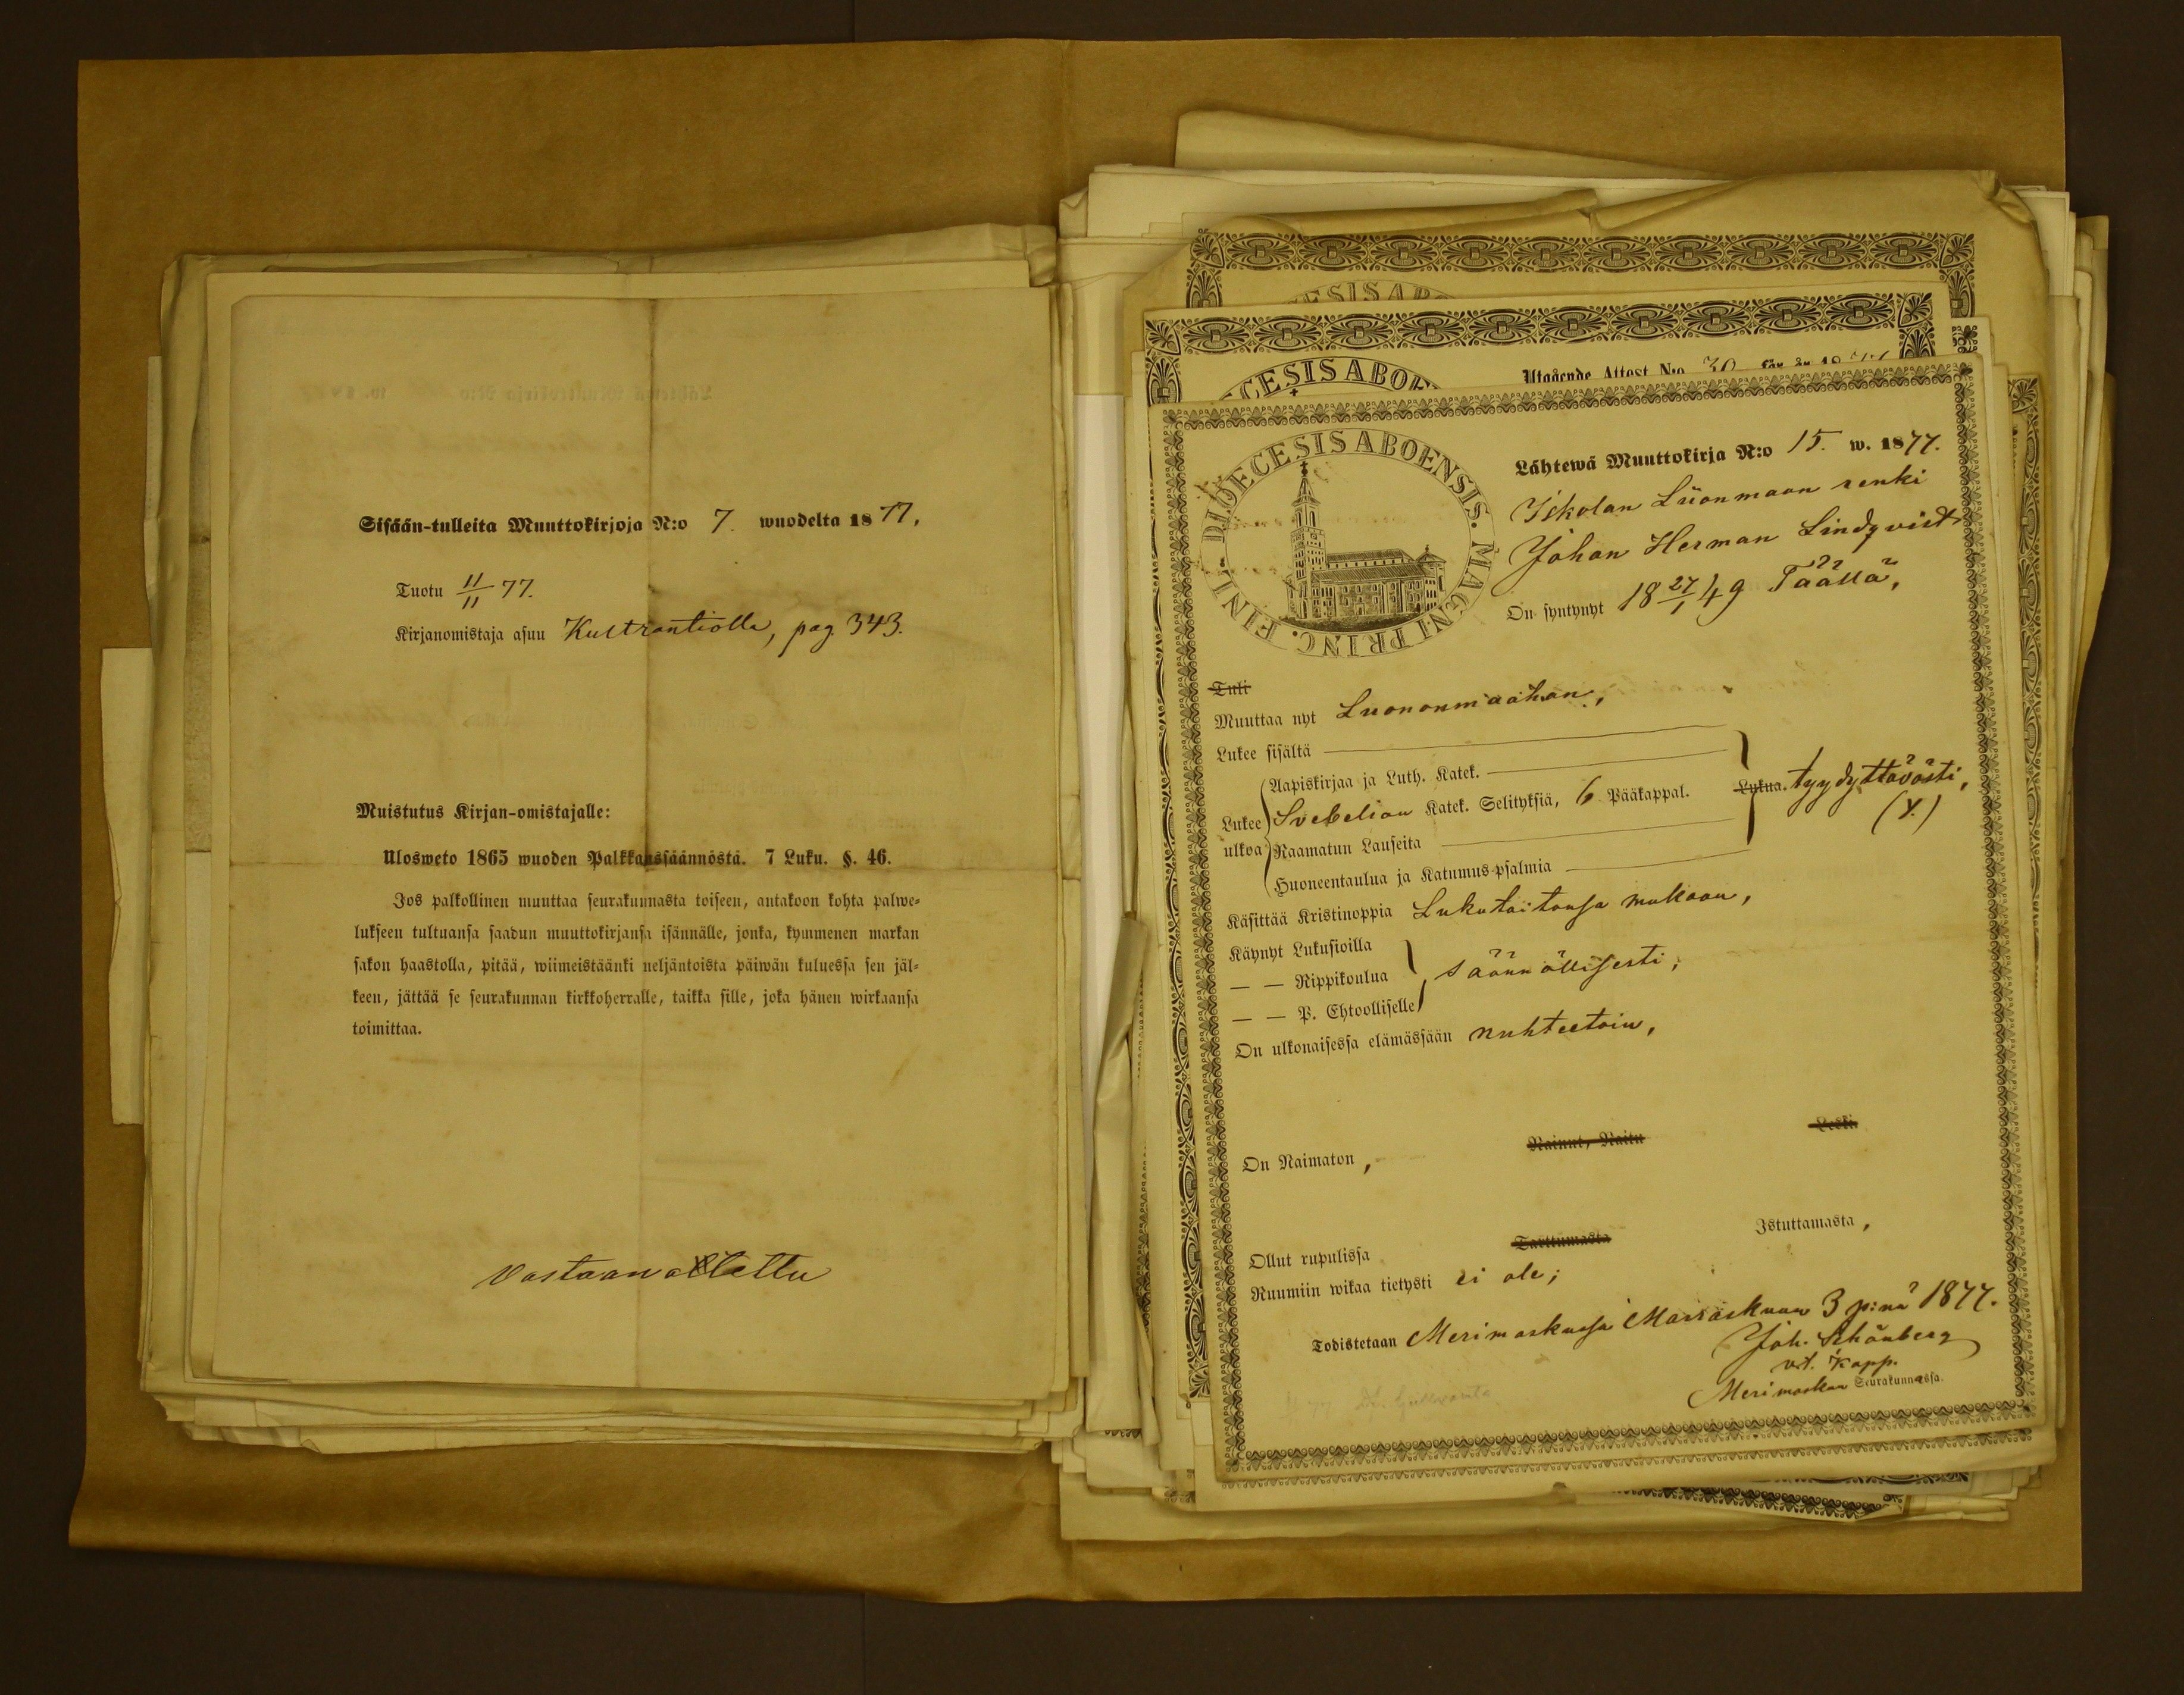 Sisään-tulleita Muuttokirjoja N:o 7. wuodelta 1877.
Tuotu 11/11 77.
Kirjanomistaja asuu Kultrantiolla, pag. 343.
Muistutus Kirjan-omistajalle:
Ulosweto 1865 wuoden Palkkaussäännöstä. 7 Luku. §. 46.
Jos palkollinen muuttaa seurakunnasta toiseen, antakoon kohta palwe-
lukseen tultuansa saadun muuttokirjansa isännälle, jonka, kymmenen markan
sakon haastolla, pitää, wiimeistäänki neljäntoista päiwän kuluessa sen jäl-
keen, jättää se seurakunnan kirkkoherralle, taikka sille, joka hänen wirkaansa
toimittaa.
Vastaanotettu
ESIS ABO
ECESIS ABOEN
Utgående Attest N:o 30 för år 18
DIOECESIS ABOENSIS. MAGNI PRINC. FINL.
Lähtewä Muuttokirja N:o 15. w. 1877.
Iskolan Luonmaan renki
Johan Herman Lindqvist
On syntynyt 18 27/1 49 Täällä,
Tuli
Muuttaa nyt Luononmaahan,
Lukee sisältä
Aapiskirjaa ja Luth. Katek.
Lukee ulkoa Svebelion Katek. Selityksiä, 6 Pääkappal. Lukua. tyydyttävästi,
Raamatun Lauseita (Y.)
Huoneentaulua ja Katumus-psalmia
Käsittää Kristinoppia Lukutaitonsa mukaan,
Käynyt Lukusioilla
— — Rippikoulua säännöllisesti,
— — P. Ehtoolliselle
On ulkonaisessa elämässään nuhteetoin,
On Naimaton, Nainut, Naitu Leski
Ollut rupulissa Tarttumasta Istuttamasta,
Ruumiin wikaa tietysti ei ole;
Todistetaan Merimaskussa Marraskuun 3 p:nä 1877.
Joh. Schönberg
v.t. Kapp.
Merimaskun Seurakunnassa.